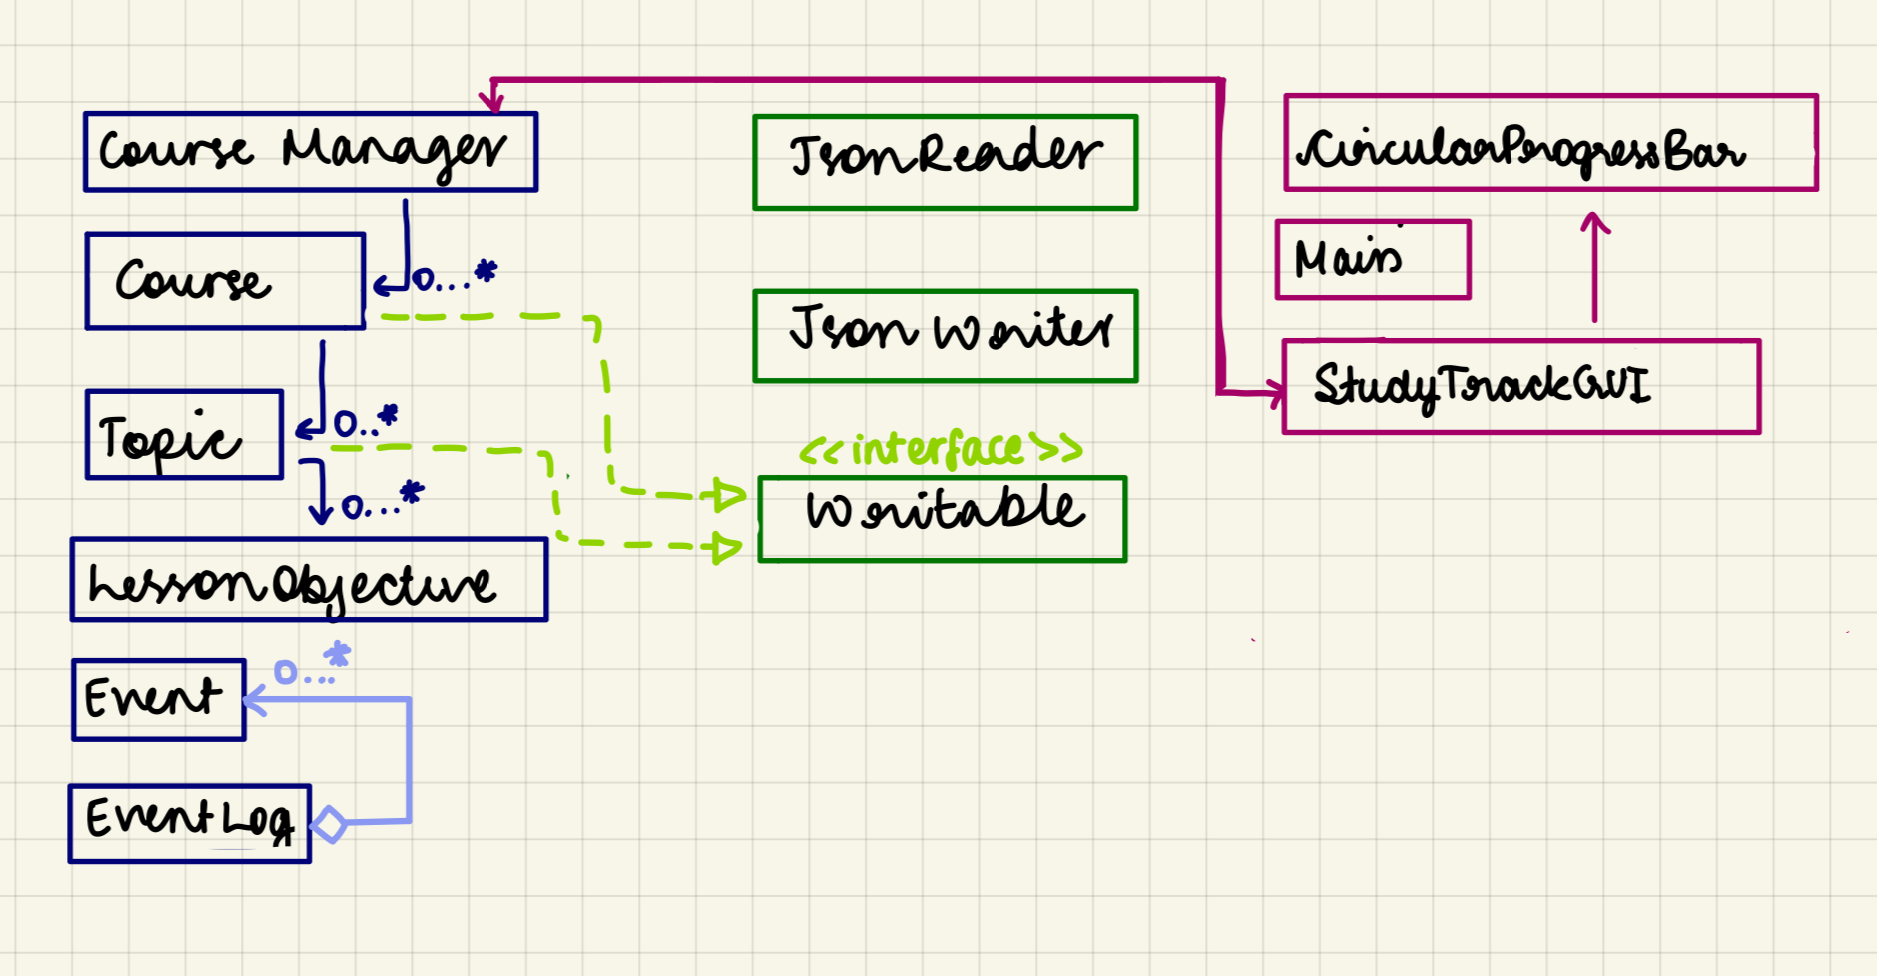 Course Manager
Course
0...*
Topic
0..*
0...*
LessonObjective
Event
0...*
EventLog
JsonReader
JsonWriter
<<interface>>
Writable
CircularProgressBar
Main
StudyTrackGUI